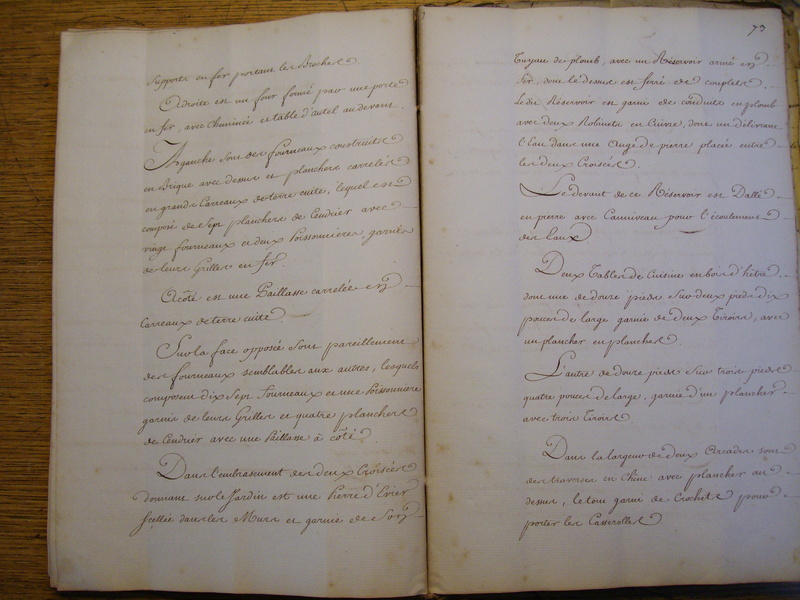 Supports en fer portant les Broches
A droite est un four fermé par une porte
en fer, avec Cheminée et table d'autel au devant.
A gauche sont des fourneaux construits
en Brique avec dessus et planchers carrelés
en grands Carreaux de terre cuite, lequel est
composé de Sept planchers de Cendrier avec
vingt fourneaux et deux Poissonnieres, garnis
de leurs Grilles en fer.
A côté est une Paillasse carrelée en
Carreaux de terre cuite
Sur la face opposée Sont pareillement
des fourneaux semblables aux autres, lesquels
composent dix Sept fourneaux et une Poissonniere
garnis de leurs Grilles et quatre planchers
de Cendrier avec une Paillasse à côté
Dans l'embrasement des deux Croisées
donnant sur le Jardin est une Pierre d'Evier
scellée dans les Murs et garnie de Son
73
Tuyau de plomb, avec un Réservoir armé en
fer, dont le dessus est ferré de couplets.
Le dit Réservoir est garni de conduits en plomb
avec deux Robinets en Cuivre, dont un délivrant
l'Eau dans une Auge de pierre placée entre
les deux Croisées.
Le devant de ce Réservoir est Dallé
en pierre avec Canniveau pour l'écoulement
des Eaux
Deux Tables de Cuisine en bois d'hêtre
dont une de douze pieds Sur deux pieds dix
pouces de large garnie de deux Tiroirs, avec
un plancher en planches.
L'autre de douze pieds Sur trois pieds
quatre pouces de large, garnie d'un plancher
avec trois Tiroirs
Dans la largeur de deux Arcades sont
des traverses en Chêne avec plancher au
dessus, le tout garni de Crochets pour
porter les Casserolles